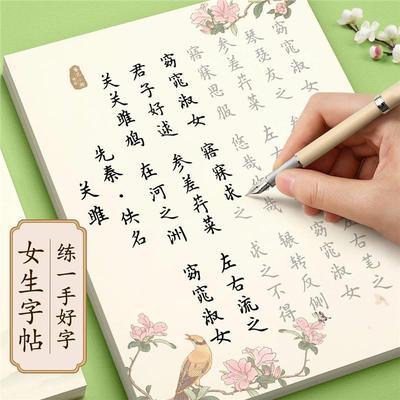 关雎
先秦·佚名
关关雎鸠 在河之洲 窈窕淑女
君子好逑 参差荇菜 左右流之
窈窕淑女 寤寐求之 求之不得
寤寐思服 悠哉悠哉 辗转反侧
参差荇菜 左右
琴瑟友之
练一手好字
女生字帖